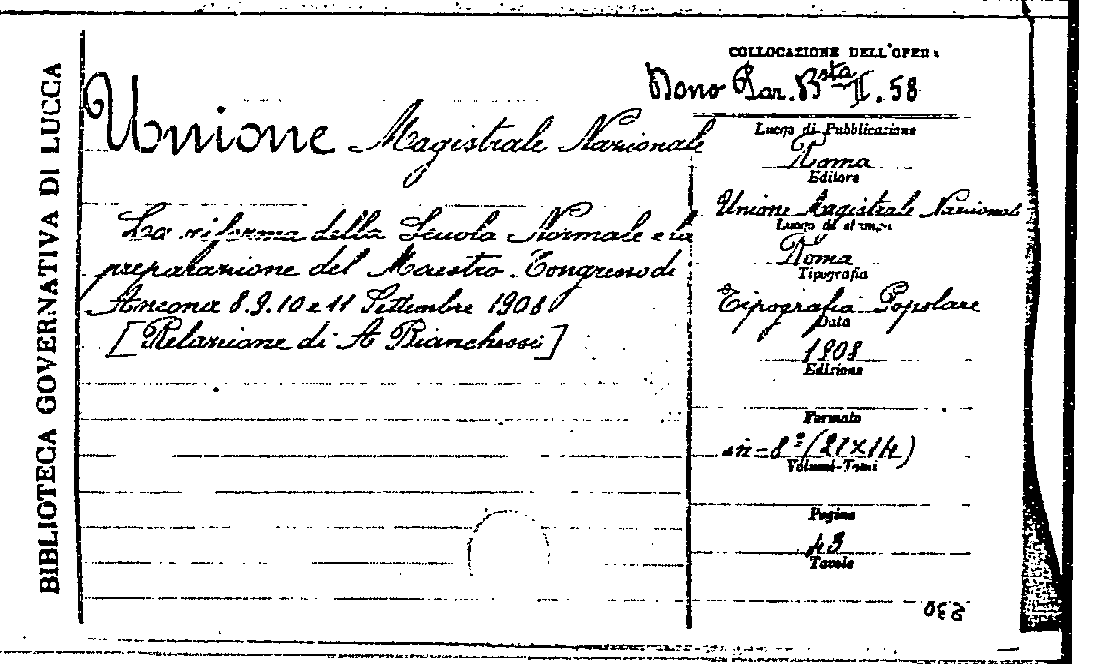 BIBLIOTECA GOVERNATIVA DI LUCCA
COLLOCAZIONE DELL'OPERA
Dono Bar. Bsta II. 58
Unione Magistrale Nazionale
La riforma della Scuola Normale e la
preparazione del Maestro. Congresso di
Ancona 8.9.10 e 11 Settembre 1908
[Relazione di A Bianchessi]
Luogo di Pubblicazione
Roma
Editore
Unione Magistrale Nazionale
Luogo di stampa
Roma
Tipografia
Tipografia Popolare
Data
1908
Edizione
Formato
in-8º (21x14)
Volumi-Tomi
Pagine
43
Tavole